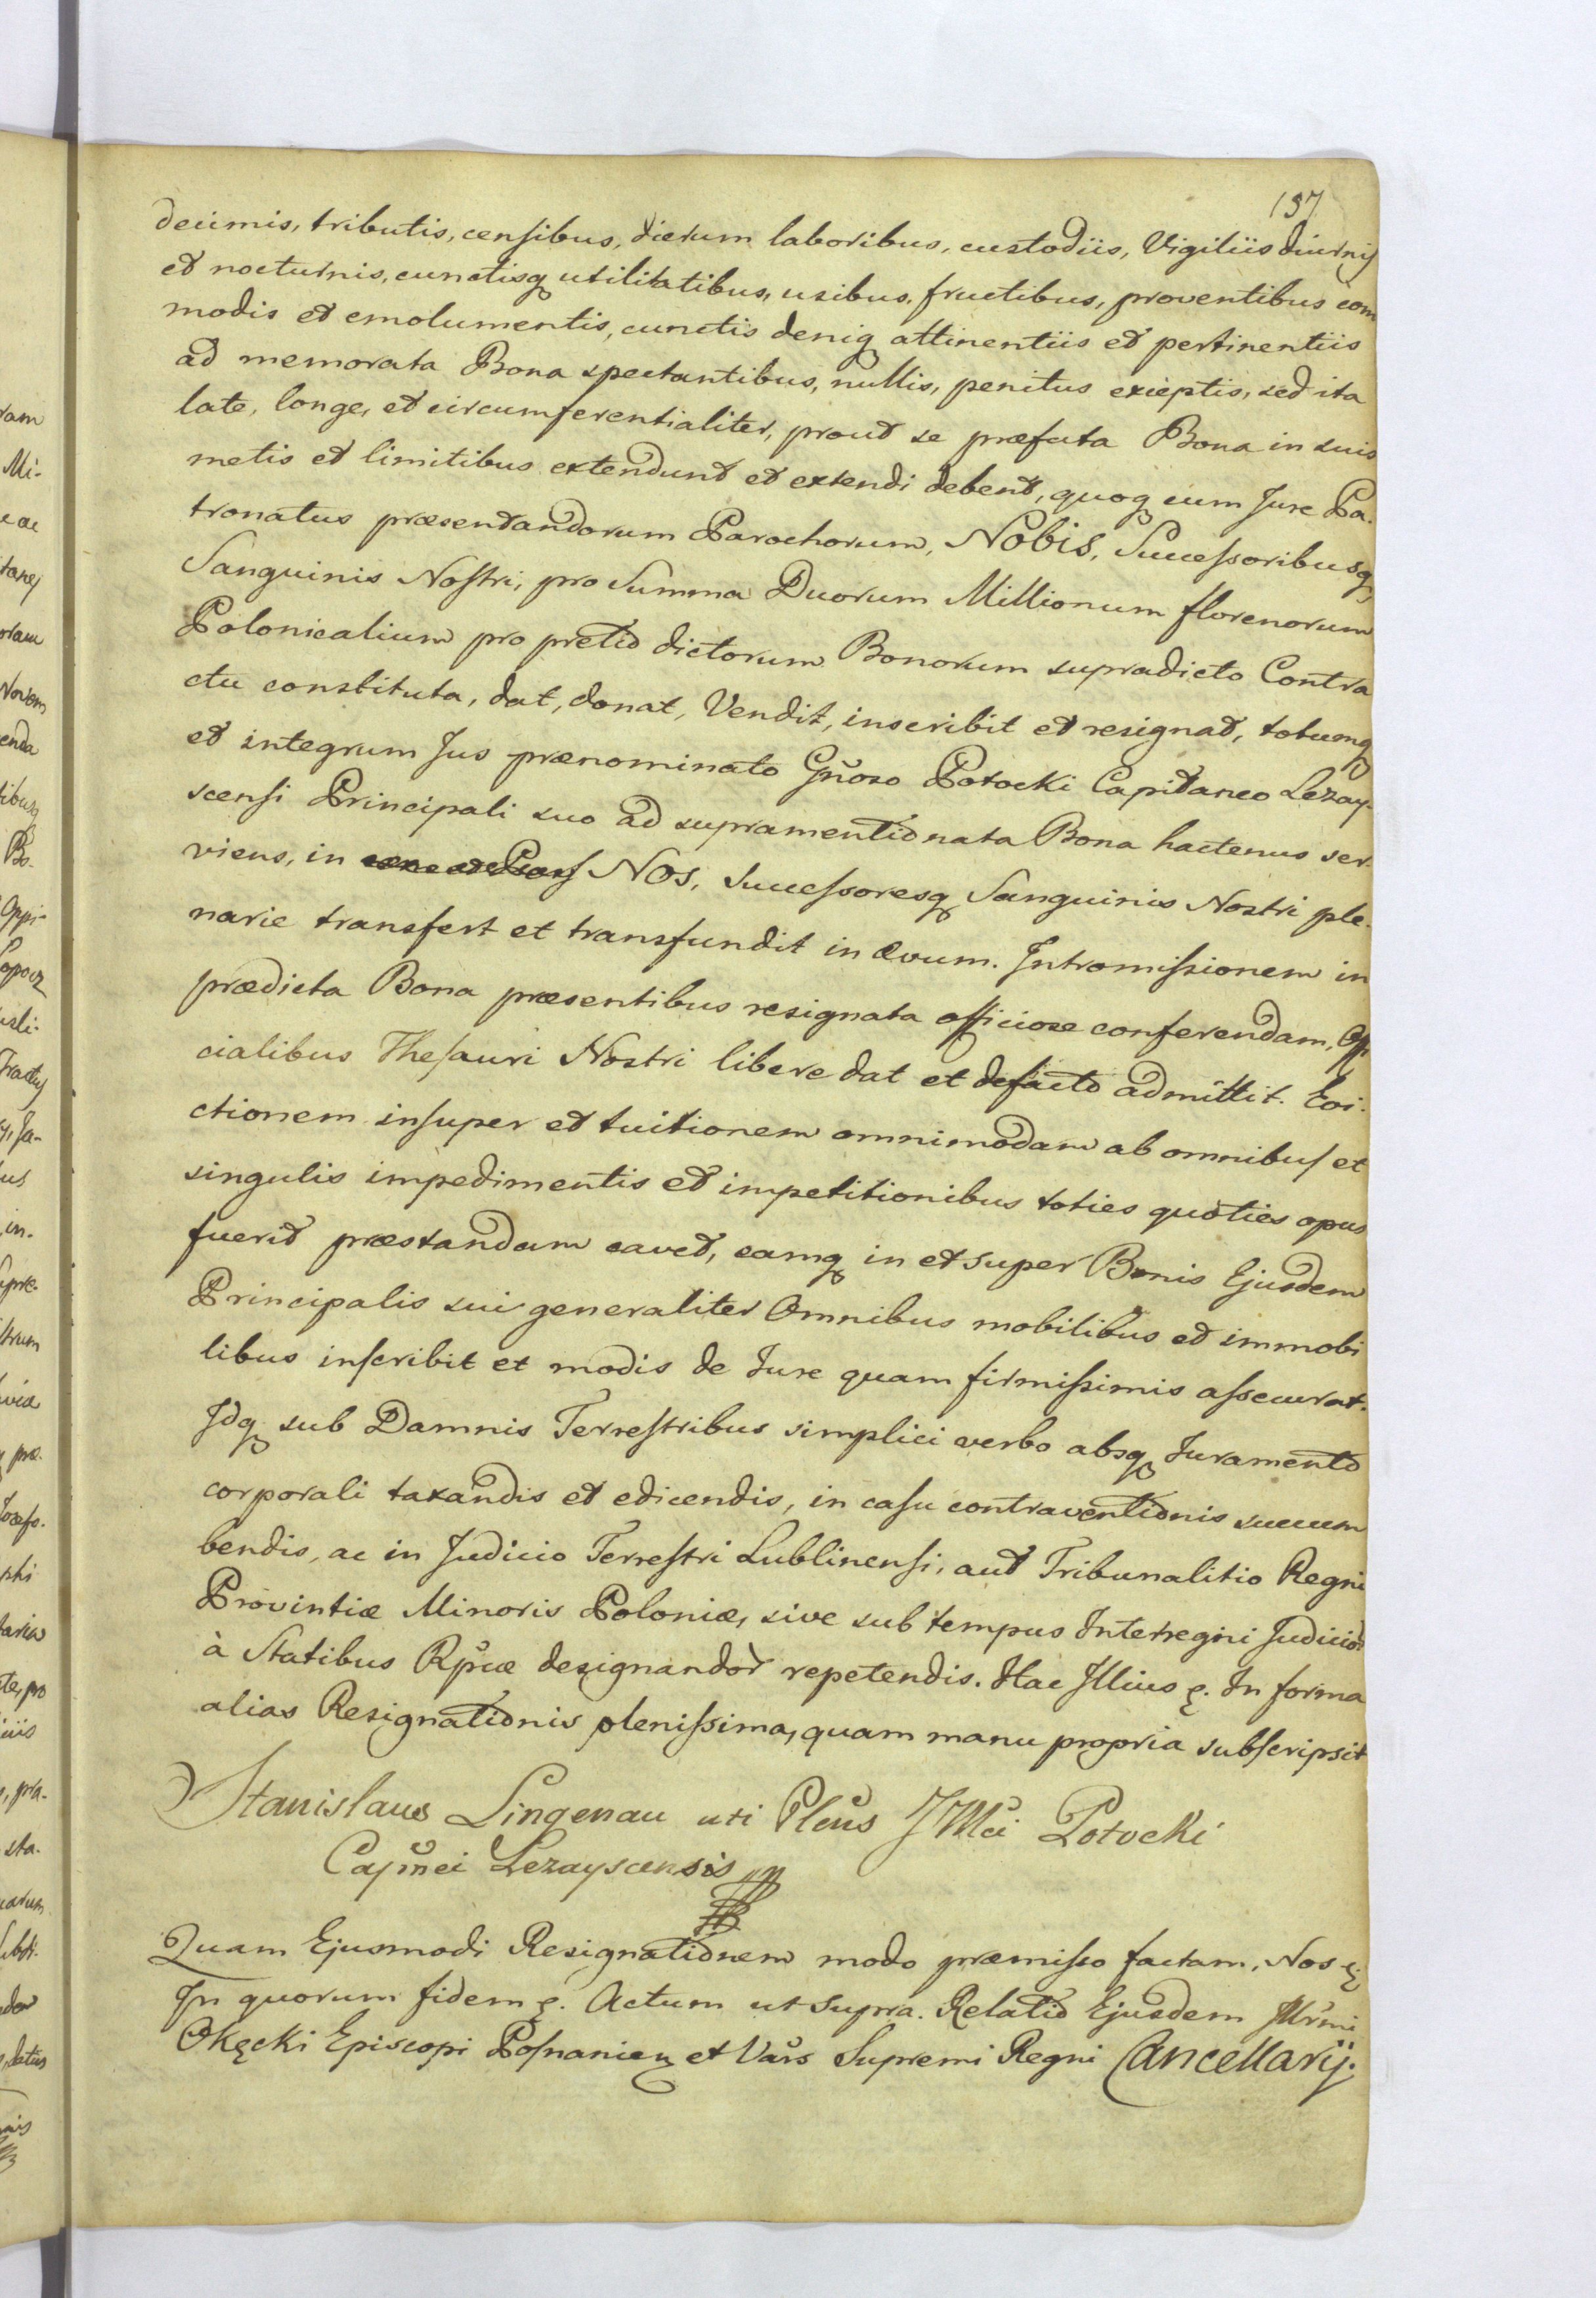 137
decimis, tributis, censibus, dierum laboribus, custodiis, Vigiliis diurnis
et nocturnis, cunctisq utilitatibus, usibus, fructibus, proventibus com
modis et emolumentis, cunctis deniq attinentiis et pertinentiis
ad memorata Bona spectantibus, nullis, penitus exceptis, sed ita
late, longe, et circumferentialiter, prout se præfata Bona in suis
metis et limitibus extendunt et extendi debent, quoq cum Jure Pa-
tronatus præsentandorum Parochorum, Nobis, Successoribusq
Sanguinis Nostri, pro Summa Duorum Millionum florenorum
Polonicalium pro pretio dictorum Bonorum supradicto Contra
ctu constituta, dat, donat, Vendit, inscribit et resignat, totumq
et integrum Jus prænominato Gnoso Potocki Capitaneo Lezay-
scensi Principali suo ad supramentionata Bona hactenus ser-
viens, in Nos, Successoresq Sanguinis Nostri ple-
narie transfert et transfundit in ævum. Intromissionem in
prædicta Bona præsentibus resignata officiose conferendam, Offi
cialibus Thesauri Nostri libere dat et defacto admittit. Evi-
ctionem insuper et tuitionem omnimodam ab omnibus et
singulis impedimentis et impetitionibus toties quoties opus
fuerit præstandam cavet, eamq in et super Bonis Ejusdem
Principalis sui generaliter Omnibus mobilibus et immobi
libus inscribit et modis de Jure quam firmissimis assecurat.
Idq sub Damnis Terrestribus simplici verbo absq Juramento
corporali taxandis et edicendis, in casu contraventionis succum
bendis, ac in Judicio Terrestri Lublinensi, aut Tribunalitio Regni
Provintiæ Minoris Poloniæ, sive sub tempus Interregni Judicior
à Statibus Rpcæ designandor repetendis. Hac Illius &. In forma
alias Resignationis plenissima, quam manu propria subscripsit
Stanislaus Lingenau uti Plens JMci Potocki
Capnei Lezayscensis mp
Quam Ejusmodi Resignationem modo præmisso factam, Nos &
In quorum fidem &. Actum ut supra. Relatio Ejusdem Illrmi
Okęcki Episcopi Posnanien et Vars Supremi Regni Cancellarij.